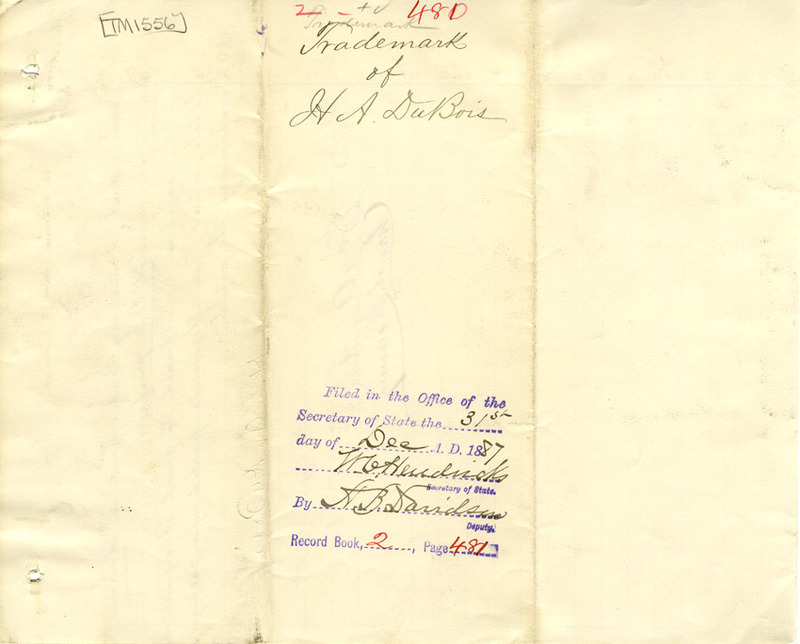 [TM1556]
2 - 480
Trademark
Trademark
of
H A. DuBois
Filed in the Office of the
Secretary of State the 31st
day of Dec A. D. 1887
W C Hendricks
Secretary of State.
By A. B. Davidson
Deputy.
Record Book, 2, Page 481